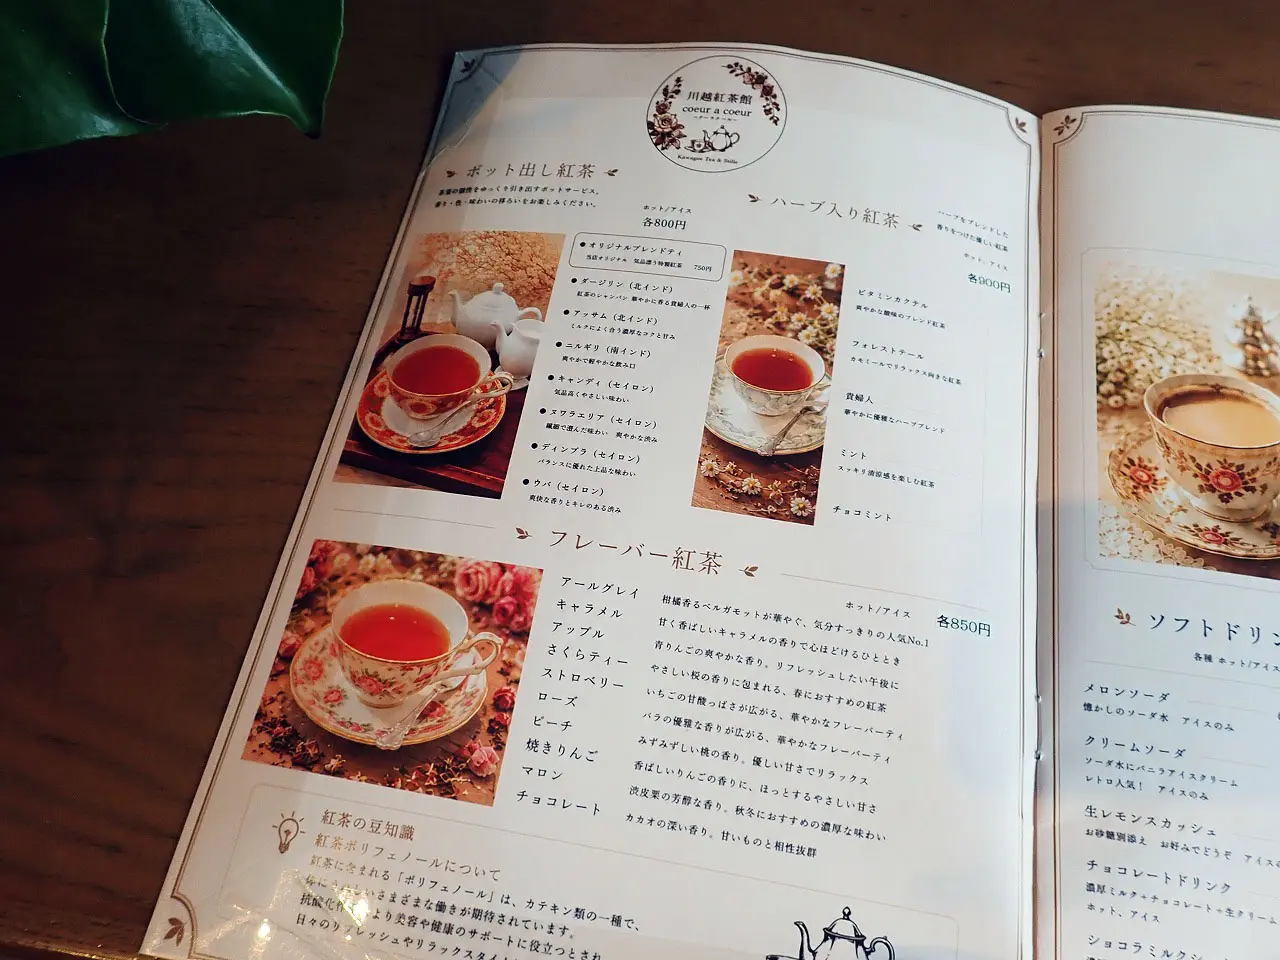 川越紅茶館
coeur a coeur
〜クーラクール〜
Kawagoe Tea &
ポット出し紅茶
茶葉の個性をゆっくり引き出すポットサービス。
香り・色・味わいの移ろいをお楽しみください。
ホット/アイス
各800円
● オリジナルブレンドティ
当店オリジナル 気品漂う特製紅茶 750円
● ダージリン（北インド）
紅茶のシャンパン 華やかに香る貴婦人の一杯
● アッサム（北インド）
ミルクによく合う濃厚なコクと甘み
● ニルギリ（南インド）
爽やかで軽やかな飲み口
● キャンディ（セイロン）
気品高くやさしい味わい
● ヌワラエリア（セイロン）
繊細で澄んだ味わい 爽やかな渋み
● ディンブラ（セイロン）
バランスに優れた上品な味わい
● ウバ（セイロン）
爽快な香りとキレのある渋み
ハーブ入り紅茶
ハーブをブレンドした
香りをつけた優しい紅茶
ホット、アイス
各900円
ビタミンカクテル
爽やかな酸味のブレンド紅茶
フォレストテール
カモミールでリラックス向きな紅茶
貴婦人
華やかに優雅なハーブブレンド
ミント
スッキリ清涼感を楽しむ紅茶
チョコミント
フレーバー紅茶
ホット/アイス
各850円
アールグレイ 柑橘香るベルガモットが華やぐ、気分すっきりの人気No.1
キャラメル 甘く香ばしいキャラメルの香りで心ほどけるひととき
アップル 青りんごの爽やかな香り。リフレッシュしたい午後に
さくらティー やさしい桜の香りに包まれる、春におすすめの紅茶
ストロベリー いちごの甘酸っぱさが広がる、華やかなフレーバーティ
ローズ バラの優雅な香りが広がる、華やかなフレーバーティ
ピーチ みずみずしい桃の香り。優しい甘さでリラックス
焼きりんご 香ばしいりんごの香りに、ほっとするやさしい甘さ
マロン 渋皮栗の芳醇な香り。秋冬におすすめの濃厚な味わい
チョコレート カカオの深い香り。甘いものと相性抜群
紅茶の豆知識
紅茶ポリフェノールについて
紅茶に含まれる「ポリフェノール」は、カテキン類の一種で、
さまざまな働きが期待されています。
抗酸化作 より美容や健康のサポートに役立つとされ
日々のリフレッシュやリラックスタイム
ソフトドリン
各種 ホット/アイス
メロンソーダ
懐かしのソーダ水 アイスのみ
クリームソーダ
ソーダ水にバニラアイスクリーム
レトロ人気！ アイスのみ
生レモンスカッシュ
お砂糖別添え お好みでどうぞ アイスの
チョコレートドリンク
濃厚ミルク+チョコレート+生クリーム
ホット、アイス
ショコラミルクシ